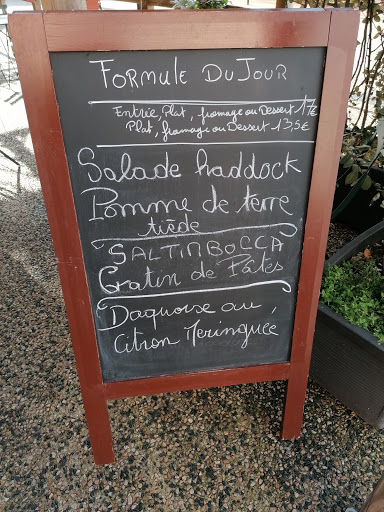 FORMULE DU JOUR
Entrée, Plat, fromage ou Dessert 17€
Plat, fromage ou Dessert 13,5€
Salade haddock
Pomme de terre
tiède
SALTINBOCCA
Gratin de Pâtes
Daquoise au
Citron Meringuée